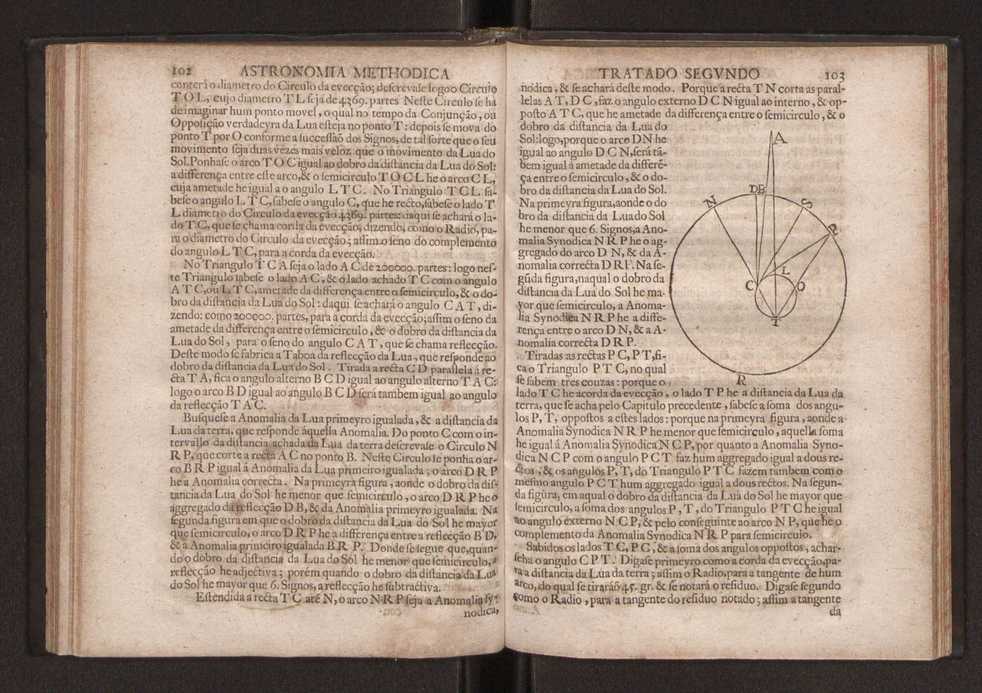 102 ASTRONOMIA METHODICA
conterà o diametro do Circulo da evecção; descrevase logo o Circulo
T O L, cujo diametro T L seja de 4369. partes Neste Circulo se ha
de imaginar hum ponto movel, o qual no tempo da Conjunção, ou
Opposição verdadeyra da Lua esteja no ponto T: depois se mova do
ponto T por O conforme a successaõ dos Signos, de tal sorte que o seu
movimento seja duas vezes mais veloz que o movimento da Lua do
Sol. Ponhase o arco T O C igual ao dobro da distancia da Lua do Sol:
a differença entre este arco, & o semicirculo T O C L he o arco C L,
cuja ametade he igual a o angulo L T C. No Triangulo T C L sa-
bese o angulo L T C, sabese o angulo C, que he recto, sabese o lado T
L diametro do Circulo da evecção 4369. partes: daqui se achará o la-
do T C, que se chama corda da evecção, dizendo, como o Radio, pa-
ra o diametro do Circulo da evecção; assim o seno do complemento
do angulo L T C, para a corda da evecção.
No Triangulo T C A seja o lado A C de 200000. partes: logo nes-
te Triangulo sabese o lado A C, & o lado achado T C com o angulo
A T C, ou L T C, ametade da differença entre o semicirculo, & o do-
bro da distancia da Lua do Sol: daqui se achará o angulo C A T, di-
zendo: como 200000. partes, para a corda da evecção; assim o seno da
ametade da differença entre o semicirculo, & o dobro da distancia da
Lua do Sol, para o seno do angulo C A T, que se chama reflecção.
Deste modo se fabrica a Taboa da reflecção da Lua, que responde ao
dobro da distancia da Lua do Sol. Tirada a recta C D parallela á re-
cta T A, fica o angulo alterno B C D igual ao angulo alterno T A C:
logo o arco B D igual ao angulo B C D será tambem igual ao angulo
da reflecção T A C.
Busquese a Anomalia da Lua primeyro igualada, & a distancia da
Lua da terra, que responde áquella Anomalia. Do ponto C com o in-
tervallo da distancia achada da Lua da terra descrevase o Circulo N
R P, que corte a recta A C no ponto B. Neste Circulo se ponha o ar-
co B R P igual á Anomalia da Lua primeiro igualada; o arco D R P
he a Anomalia correcta. Na primeyra figura, aonde o dobro da dis-
tancia da Lua do Sol he menor que semicirculo, o arco D R P he o
aggregado da reflecção D B, & da Anomalia primeyro igualada. Na
segunda figura em que o dobro da distancia da Lua do Sol he mayor
que semicirculo, o arco D R P he a differença entre a reflecção B D,
& a Anomalia primeiro igualada B R P. Donde se segue que, quan-
do o dobro da distancia da Lua do Sol he menor que semicirculo, a
reflecção he adjectiva; porém quando o dobro da distancia da Lua
do Sol he mayor que 6. Signos, a reflecção he subtractiva.
Estendida a recta T C até N, o arco N R P seja a Anomalia sy-
nodica,
TRATADO SEGVNDO 103
nodica, & se achará deste modo. Porque a recta T N corta as paral-
lelas A T, D C, faz o angulo externo D C N igual ao interno, & op-
posto A T C, que he ametade da differença entre o semicirculo, & o
dobro da distancia da Lua do
Sol: logo, porque o arco D N he
igual ao angulo D C N, será tã-
bem igual á ametade da differẽ-
ça entre o semicirculo, & o do-
bro da distancia da Lua do Sol.
Na primeyra figura, aonde o do
bro da distancia da Lua do Sol
he menor que 6. Signos, a Ano-
malia Synodica N R P he o ag-
gregado do arco D N, & da A-
nomalia correcta D R P. Na se-
gũda figura, na qual o dobro da
distancia da Lua do Sol he ma-
yor que semicirculo, a Anoma-
lia Synodica N R P he a diffe-
rença entre o arco D N, & a A-
nomalia correcta D R P.
Tiradas as rectas P C, P T, fi-
ca o Triangulo P T C, no qual
se sabem tres couzas: porque o
lado T C he a corda da evecção, o lado T P he a distancia da Lua da
terra, que se acha pelo Capitulo precedente, sabese a soma dos angu-
los P, T, oppostos a estes lados: porque na primeyra figura, aonde a
Anomalia Synodica N R P he menor que semicirculo, aquella soma
he igual á Anomalia Synodica N C P, por quanto a Anomalia Syno-
dica N C P com o angulo P C T faz hum aggregado igual a dous re-
ctos, & os angulos P, T, do Triangulo P T C fazem tambem com o
mesmo angulo P C T hum aggregado igual a dous rectos. Na segun-
da figura, em a qual o dobro da distancia da Lua do Sol he mayor que
semicirculo, a soma dos angulos P, T, do Triangulo P T C he igual
ao angulo externo N C P, & pelo conseguinte ao arco N P, que he o
complemento da Anomalia Synodica N R P para semicirculo.
Sabidos os lados T C, P C, & a soma dos angulos oppostos, achar-
seha o angulo C P T. Digase primeyro como a corda da evecção, pa-
ra a distancia da Lua da terra; assim o Radio, para a tangente de hum
arco, do qual se tirarão 45. gr. & se notará o residuo. Digase segundo
como o Radio, para a tangente do residuo notado; assim a tangente
da
A
DB
N
S
P
L
C
O
T
R